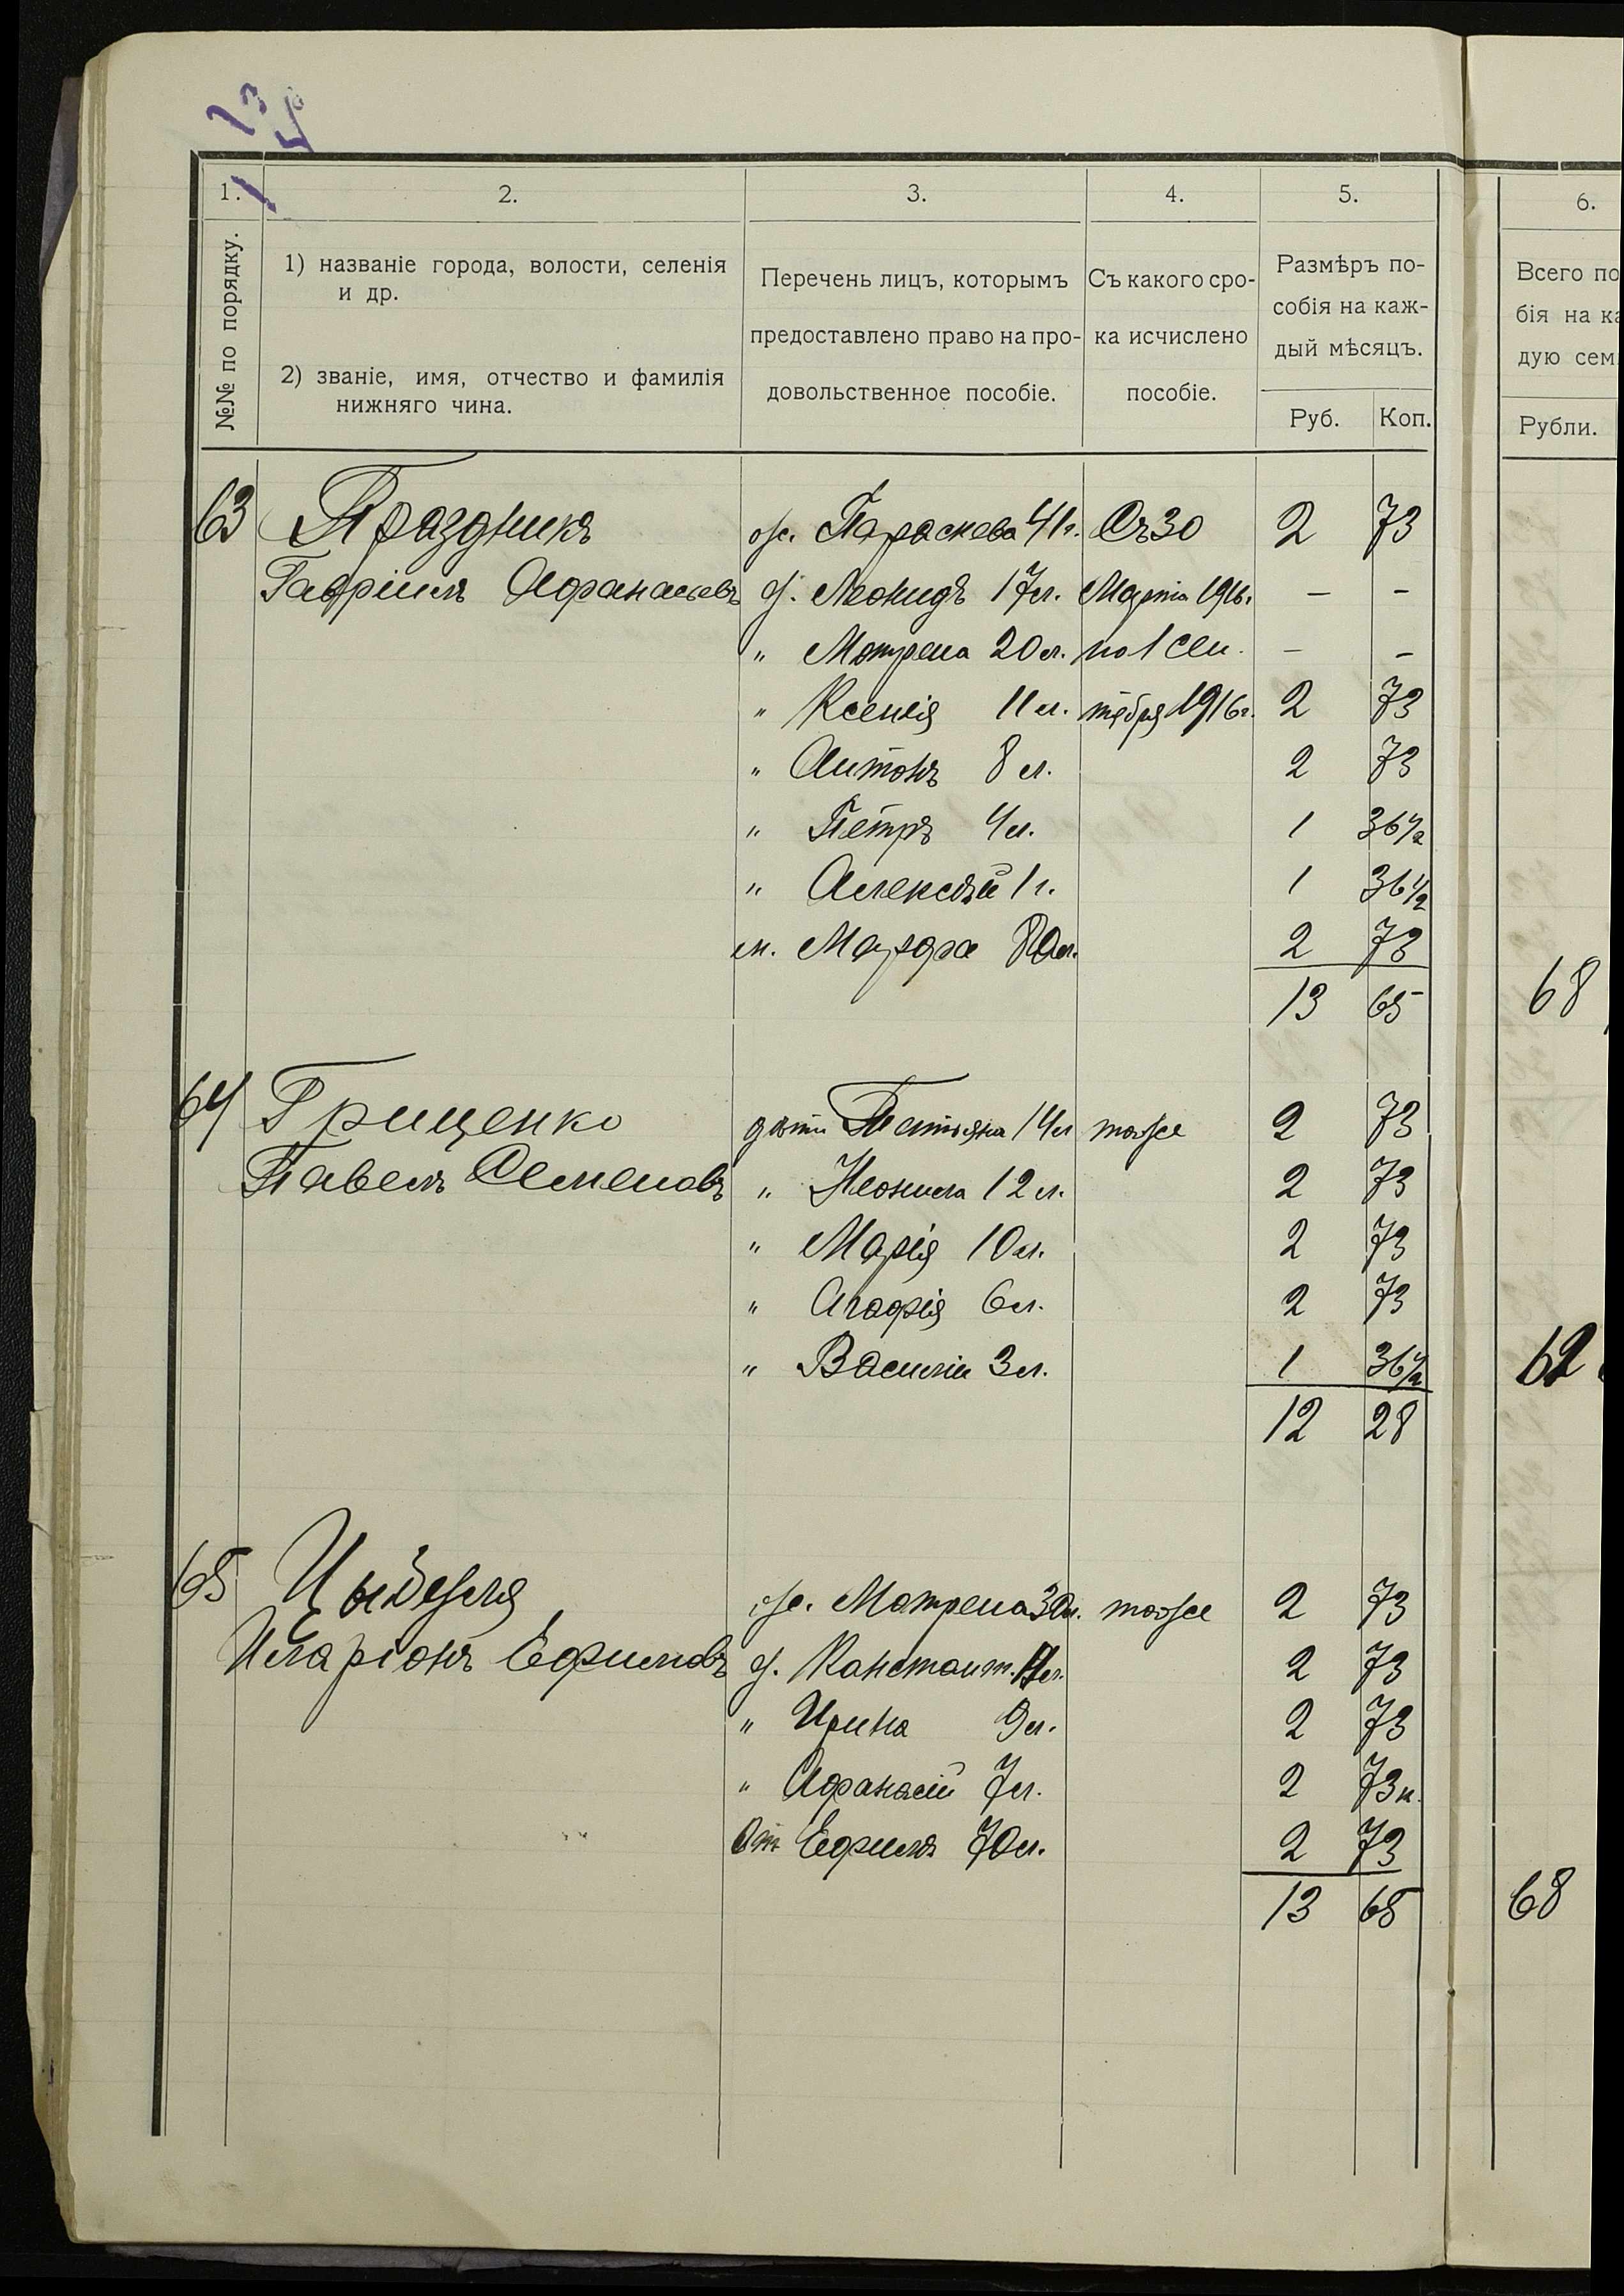 1. 2. 3. 4. 5. 6.
№№ по порядку.
1) названіе города, волости, селенія
и др.
2) званіе, имя, отчество и фамилія
нижняго чина.
Перечень лицъ, которымъ
предоставлено право на про-
довольственное пособіе.
Съ какого сро-
ка исчислено
пособіе.
Размѣръ по-
собія на каж-
дый мѣсяцъ.
Руб. Коп.
Всего по
бія на ка
дую сем
Рубли.
63 Праздникъ ж. Параскева 41г. Съ 30 2 73
Гавріилъ Афанасьевъ д. Леонидъ 17л. Марта 1916. — -
" Мотрена 20л. по 1 сен- — -
" Ксенія 11л. тября 1916г. 2 73
" Антонъ 8л. 2 73
" Петръ 4л. 1 36 1/2
" Алексѣй 1г. 1 36 1/2
м. Марфа 80л. 2 73
13 65 68
64 Грищенко дѣти Татьяна 14л тоже 2 73
Павелъ Семеновъ " Неонила 12л. 2 73
" Марія 10л. 2 73
" Агафія 6л. 2 73
" Василій 3л. 1 36 1/2 62
12 28
65 ж. Мотрена тоже 2 73
Иларіонъ Ефимовъ д. Констант. 2 73
" Ирина 9л. 2 73
" Афанасій 7л. 2 73к.
От Ефимъ 70л. 2 73
13 65 68